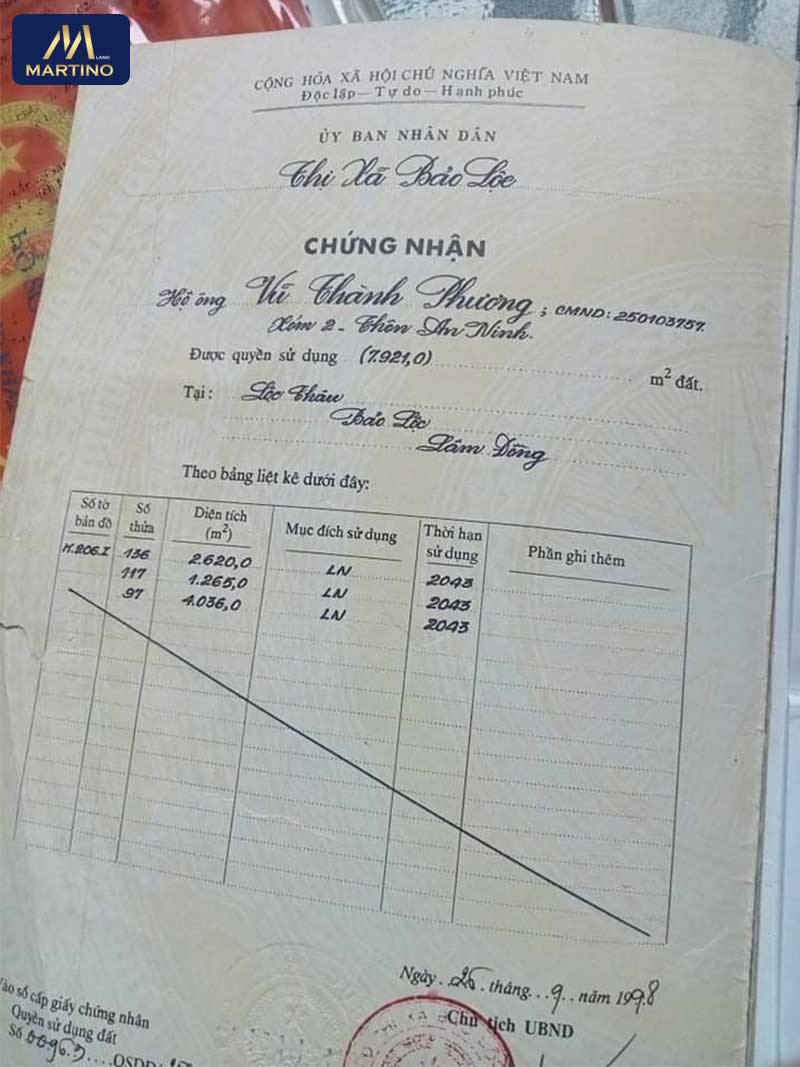 LAND
MARTINO
CỘNG HÒA XÃ HỘI CHỦ NGHĨA VIỆT NAM
Độc lập — Tự do — Hạnh phúc
ỦY BAN NHÂN DÂN
Thị Xã Bảo Lộc
CHỨNG NHẬN
Hộ ông Vũ Thành Phương ; CMND: 250103757.
Xóm 2 - Thôn An Ninh.
Được quyền sử dụng (7.921,0) m² đất.
Tại: Lộc Châu
Bảo Lộc
Lâm Đồng
Theo bảng liệt kê dưới đây:
Số tờ bản đồ Số thửa Diện tích (m²) Mục đích sử dụng Thời hạn sử dụng Phần ghi thêm
H.206.I 136 2.620,0 LN 2043
117 1.265,0 LN 2043
97 4.036,0 LN 2043
Ngày 26 tháng 9 năm 1998
Chủ tịch UBND
Vào sổ cấp giấy chứng nhận
Quyền sử dụng đất
Số 00963 QSDĐ/